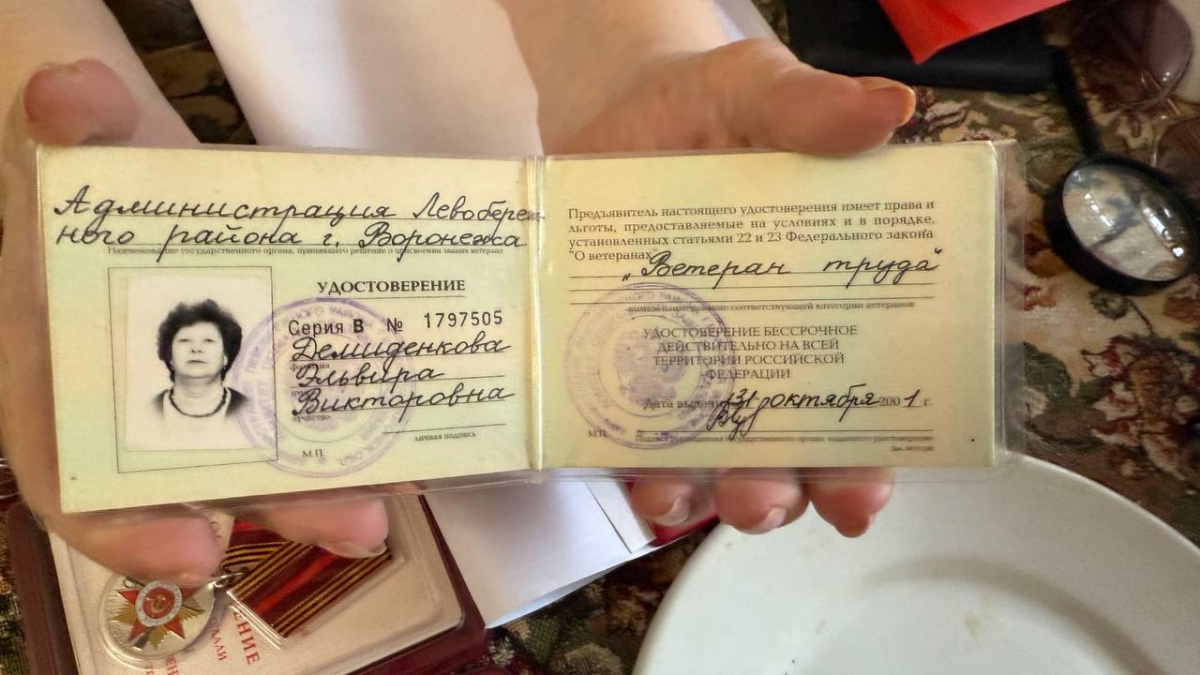 Администрация Левобереж
ного района г. Воронежа
Наименование государственного органа, принявшего решение о присвоении звания ветерана
УДОСТОВЕРЕНИЕ
Серия В № 1797505
Демиденкова
Эльвира
Викторовна
личная подпись
М.П.
Предъявитель настоящего удостоверения имеет права и
льготы, предоставляемые на условиях и в порядке,
установленных статьями 22 и 23 Федерального закона
"О ветеранах"
„Ветеран труда"
наименование соответствующей категории ветеранов
УДОСТОВЕРЕНИЕ БЕССРОЧНОЕ
ДЕЙСТВИТЕЛЬНО НА ВСЕЙ
ТЕРРИТОРИИ РОССИЙСКОЙ
ФЕДЕРАЦИИ
Дата выдачи 31 октября 2001 г.
М.П.